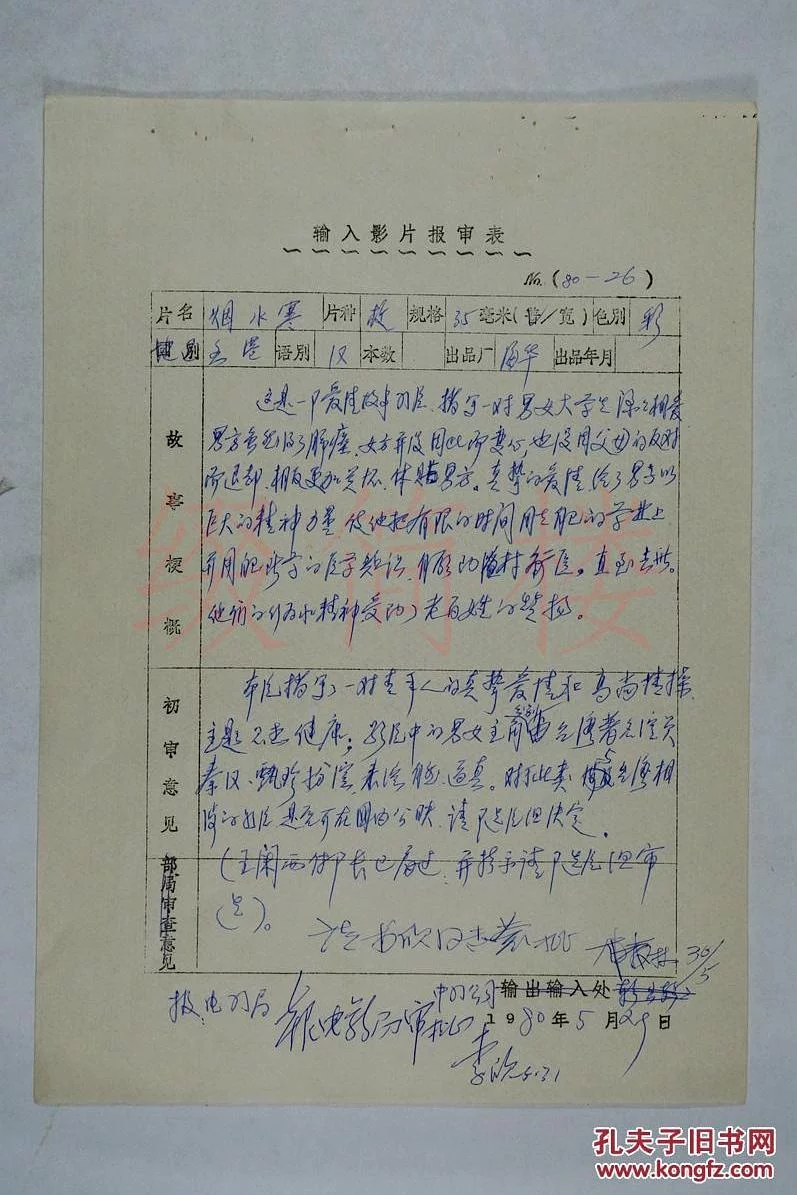 输入影片报审表
No. (80-26)
片名 烟水寒 片种 故 规格 35毫米(普/宽) 色别 彩
国别 香港 语别 汉 本数 出品厂 海华 出品年月
故事梗概
这是一部爱情故事影片. 描写一对男女大学生深深相爱
男方虽然得了肺癌, 女方并没因此而变心, 也没因父母的反对
而退却, 相反更加关怀、体贴男方。真挚的爱情, 给了男方以
巨大的精神力量 使他把有限的时间用在自己的学业上
并用自己所学的医学知识, 自愿到渔村行医。直至去世。
他们的行为和精神受到了老百姓的赞扬。
初审意见
本片描写了一对青年人的真挚爱情和高尚情操,
主题思想健康; 影片中的男女主角分别由台湾著名演员
秦汉、甄珍扮演, 表演自然、逼真。对于此类与台湾相
的影片, 是否可在国内公映, 请 决定。
部局审查意见
(王阑西付部长已看过, 并指示请 审
)。
30/5
报电影局
报电影局审批
中影公司 输出输入处
1980年5月29日
李 5.31
孔夫子旧书网
www.kongfz.com